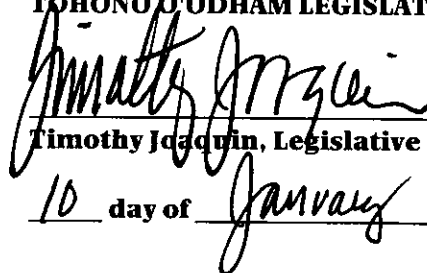 TOHONO O'ODHAM LEGISLAT
Timothy Joaquin
Timothy Joaquin, Legislative
10 day of January